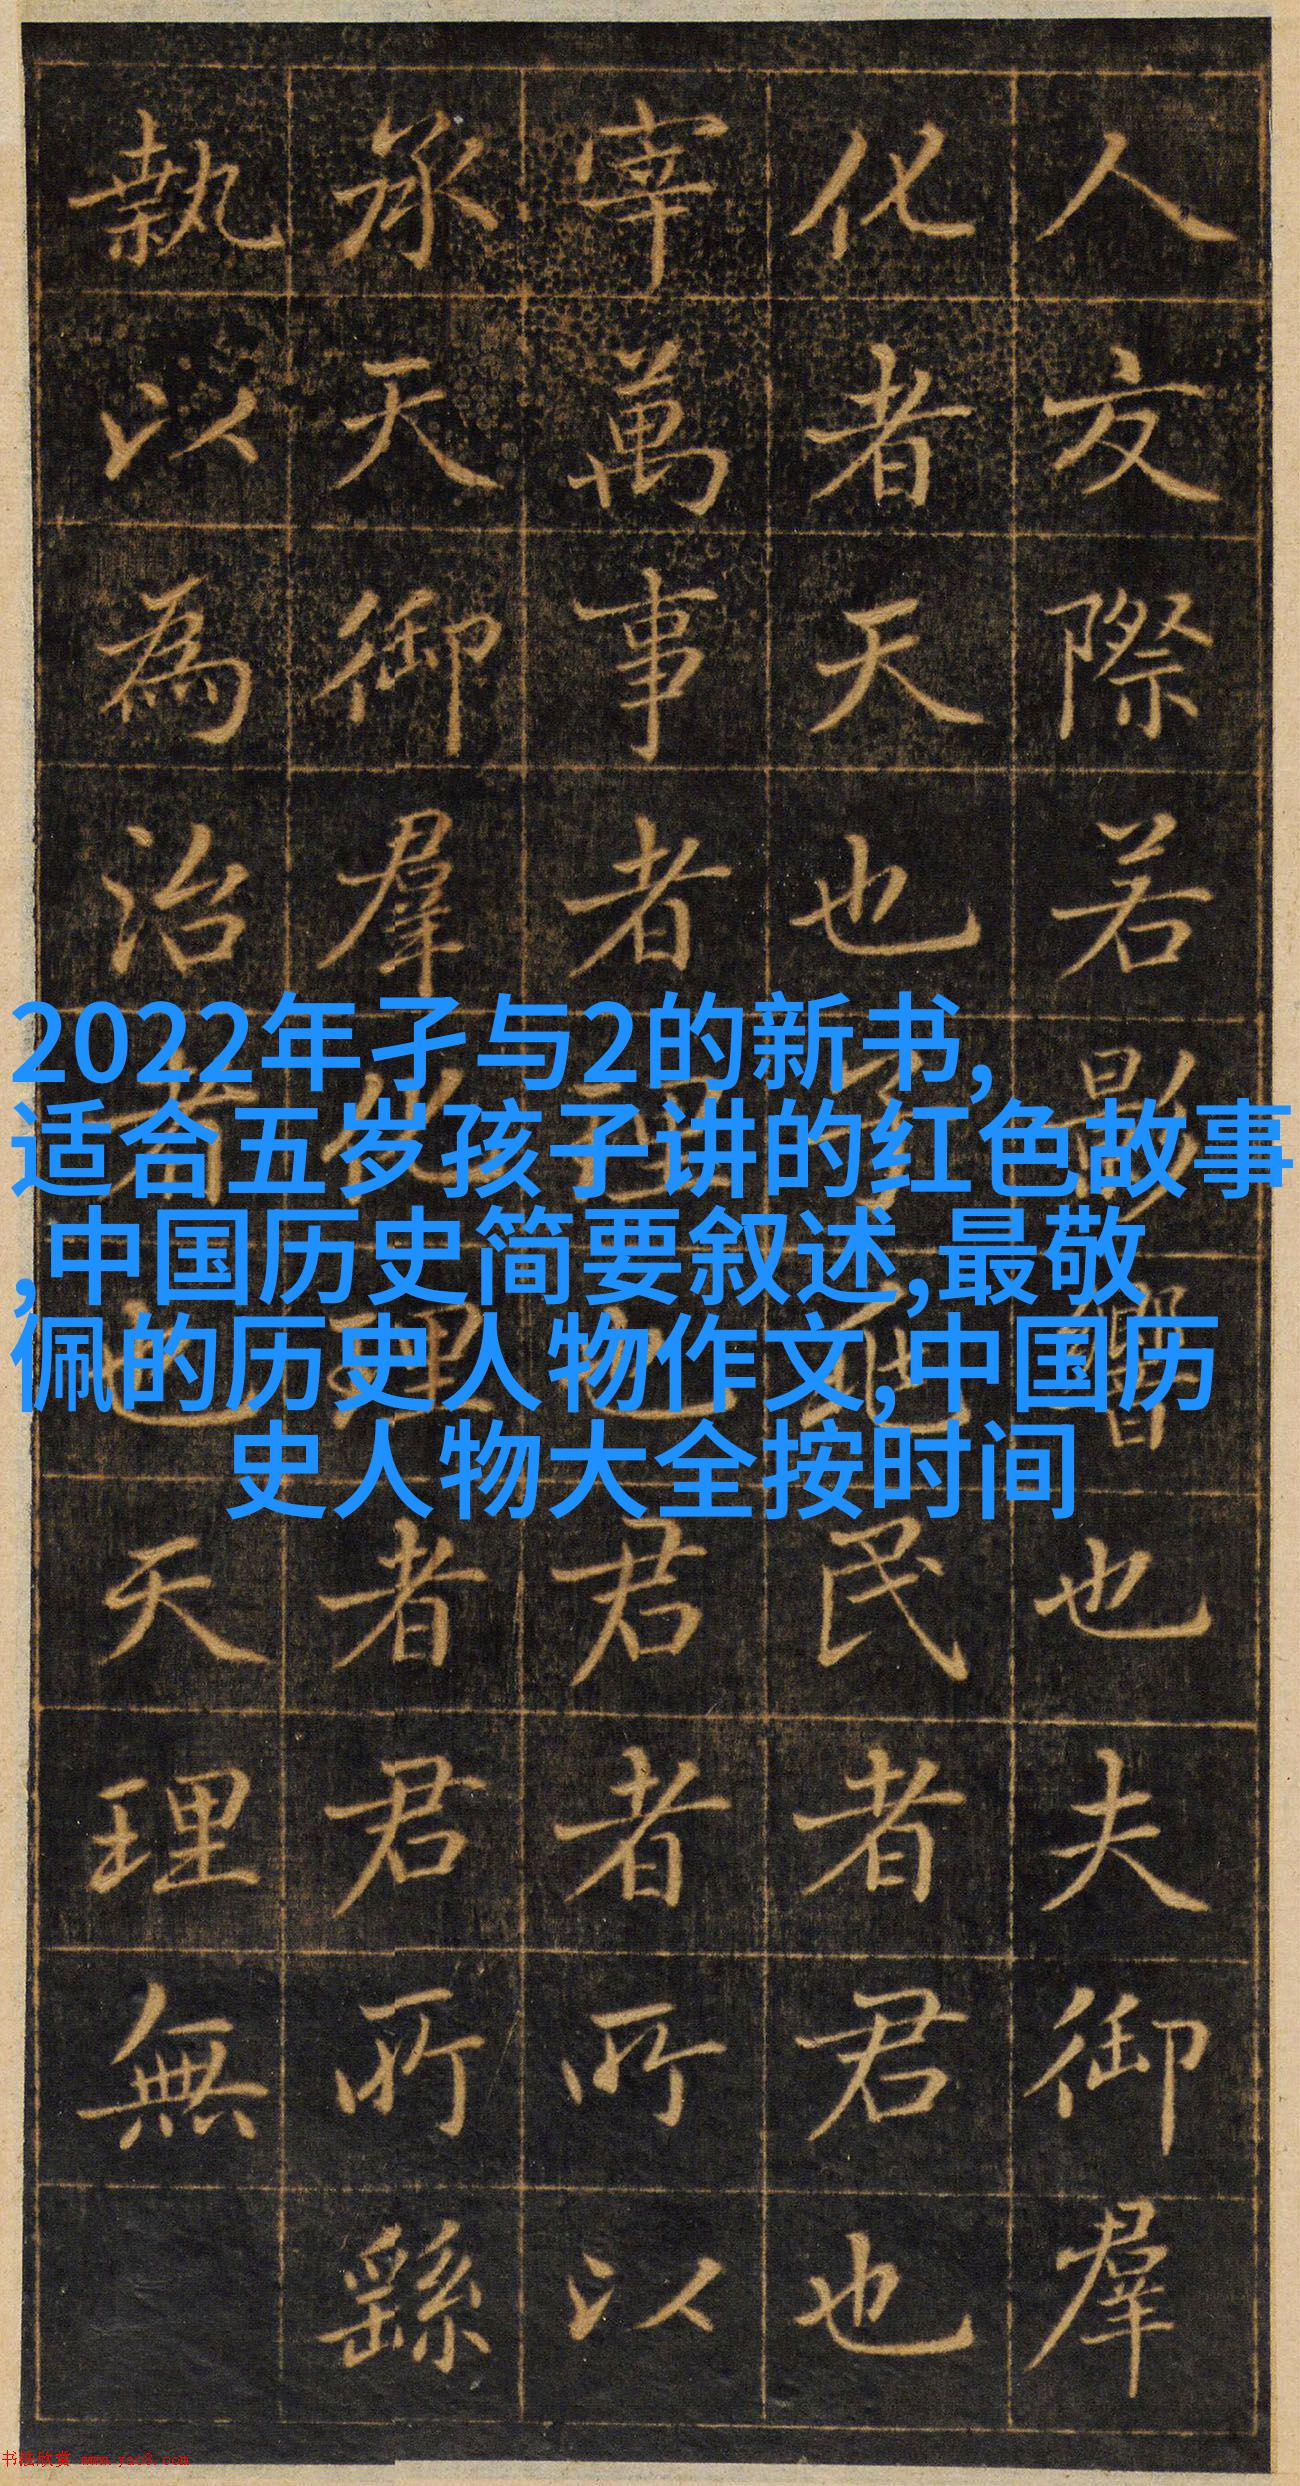 人交際若影響也夫御羣
化者天也子兆民者君也
宰萬事者臣也君者所以
承天御羣理者君所繇
執以為治者也天理無
2022年孑与2的新书,
适合五岁孩子讲的红色故事
,中国历史简要叙述,最敬
佩的历史人物作文,中国历
史人物大全按时间
书法欣赏 www.yac8.com